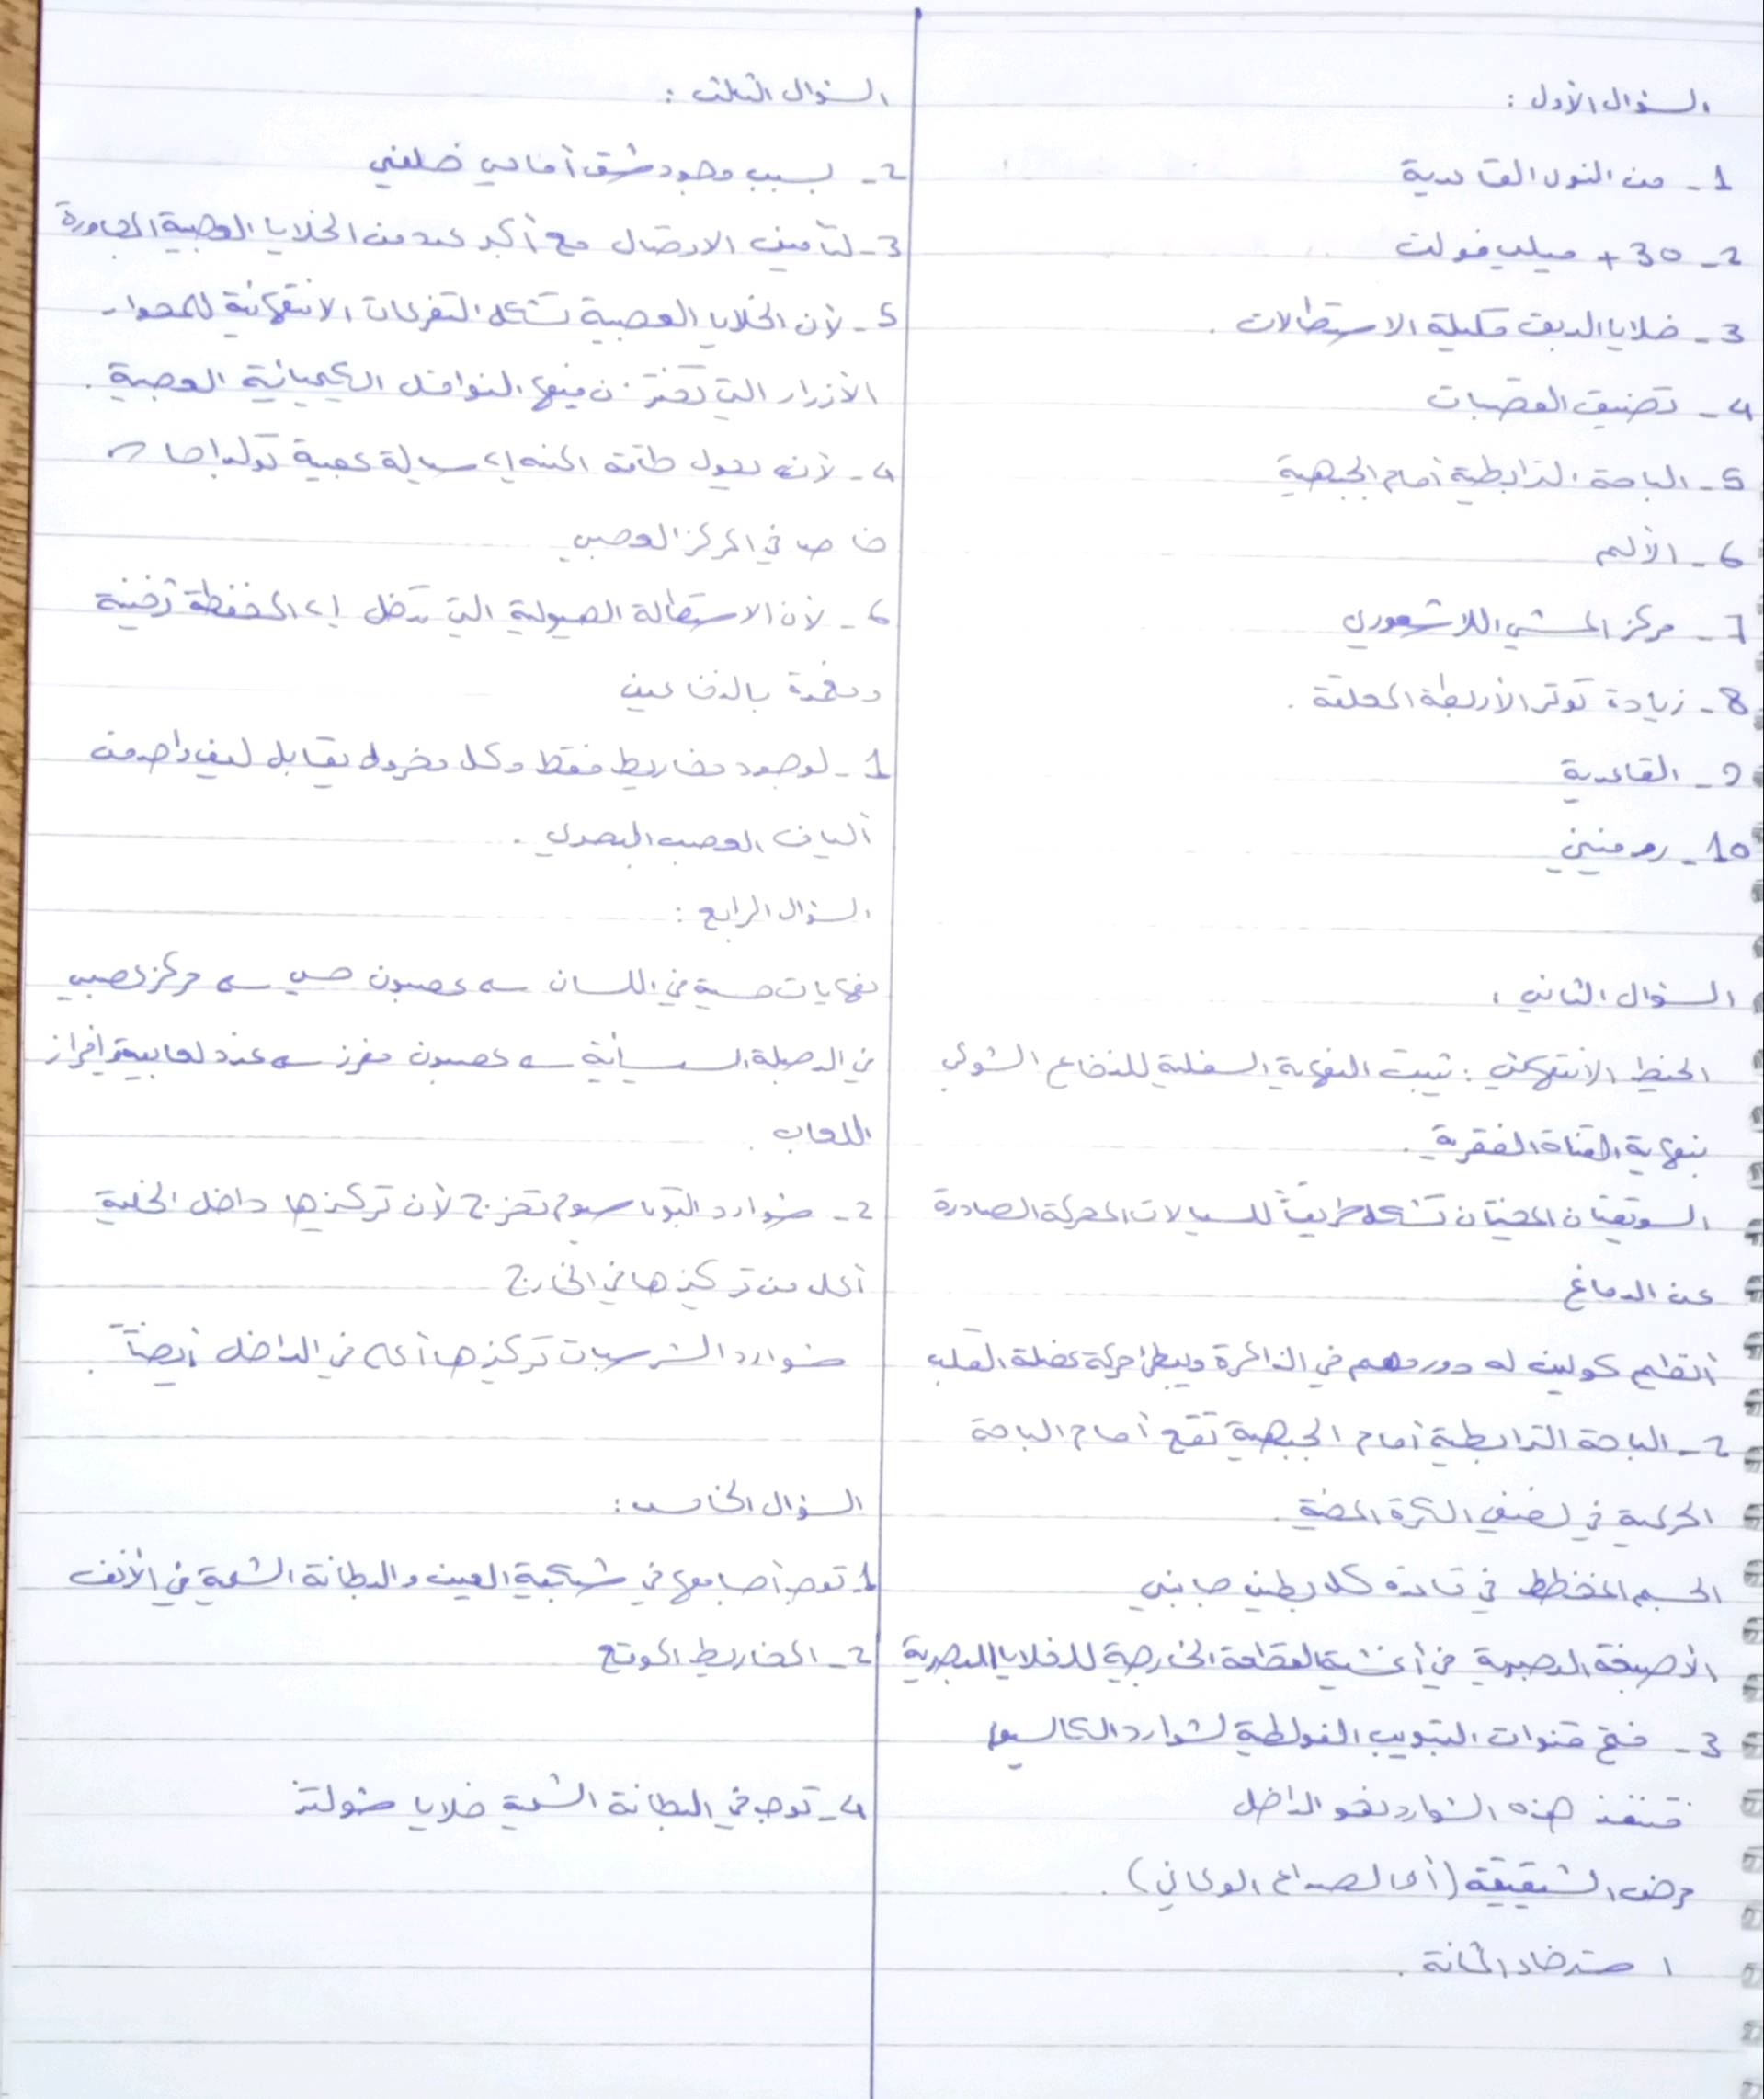 السؤال الأول :
1 - من النوى القاعدية
2 - 30 + ميلي فولت
3 - خلايا الدبق قليلة الاستطالات .
4 - تضيق القصبات
5 - الباحة الترابطية أمام الجبهية
6 - الألم
7 - مركز المشي اللاشعوري
8 - زيادة توتر الأربطة المعلقة .
9 - القاعدية
10 - روفيني
السؤال الثاني :
الخيط الانتهائي : تثبت النهاية السفلية للنخاع الشوكي
بنهاية القناة الفقرية .
السويقتان المخيتان تشكل طريقاً للسيالات المحركة الصادرة
عن الدماغ
أستيل كولين له دور مهم في الذاكرة ويبطئ حركة عضلة القلب
2 - الباحة الترابطية أمام الجبهية تقع أمام الباحة
الحركية في نصفي الكرة المخية .
الجسم المخطط في قاعدة كل بطين جانبي
الأصبغة البصرية في أغشية القطعة الخارجية للخلايا البصرية
3 - فتح قنوات التبويب الفولطية لشوارد الكالسيوم
فتنفذ هذه الشوارد نحو الداخل
مرض الشقيقة (أو الصداع الوعائي) .
استرخاء المثانة .
السؤال الثالث :
2 - بسبب وجود شق أمامي خلفي
3 - لتأمين الاتصال مع أكبر عدد من الخلايا العصبية المجاورة
5 - لأن الخلايا العصبية تشكل التفرعات الانتهائية للمحوار
الأزرار التي تختزن فيها النواقل الكيميائية العصبية .
4 - لأنه يحول طاقة المنبه إلى سيالة عصبية تولد إحساس
خاص في المركز العصبي
6 - لأن الاستطالة الهيولية التي تدخل إلى المحفظة ثخينة
ومغمدة بالنخاعين
1 - لوجود مخاريط فقط وكل مخروط يقابل ليف واحد من
ألياف العصب البصري .
السؤال الرابع :
نهايات حسية في اللسان ← عصبون حسي ← مركز عصبي
في البصلة السيسائية ← عصبون مفرز ← غدد لعابية إفراز
اللعاب .
2 - شوارد البوتاسيوم تخرج لأن تركيزها داخل الخلية
أعلى من تركيزها في الخارج
شوارد الشرسبات تركيزها أعلى في الداخل أيضاً .
السؤال الخامس :
1 - توجد أجسامها في شبكية العين والبطانة الشمية في الأنف
2 - المخاريط الموقع
4 - توجد في البطانة الشمية خلايا